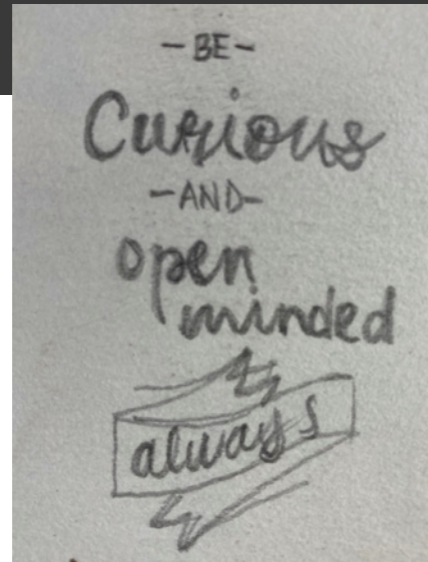 - BE -
Curious
- AND -
open
minded
always